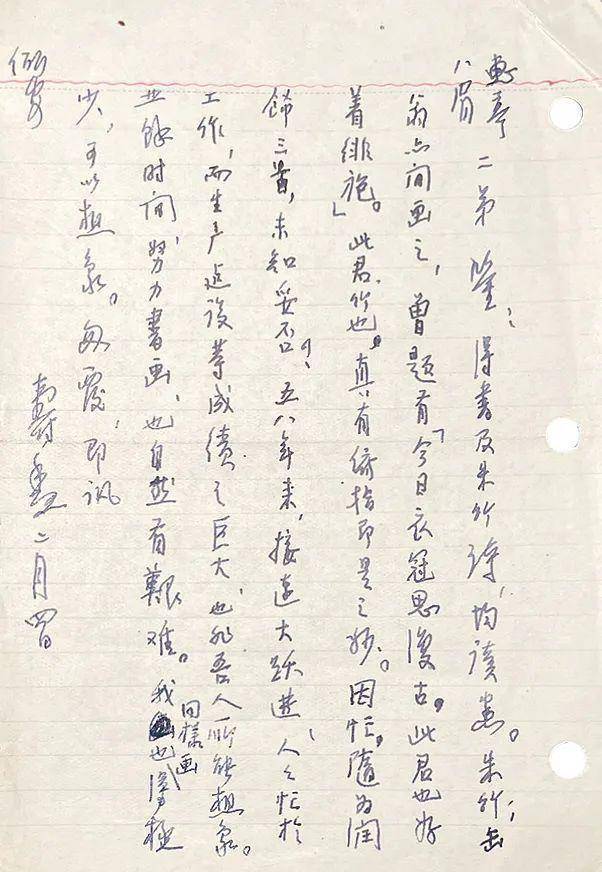 八眉 二弟鉴：得書及朱竹诗，均读悉。朱竹，缶
翁亦间画之，曾题有「今日衣冠思復古，此君也好
着绯袍」。此君，竹也，真有俯拾即是之妙。因忙，随为润
飾三首，未知妥否？五八年来，接连大跃进，人人忙於
工作，而生产建设等成绩之巨大，也非吾人所能想象。
业餘时间，努力書画，也自然有艱难。我也同樣画得极
少，可以想象。匆覆，即讯
俪安
寿 二月四日